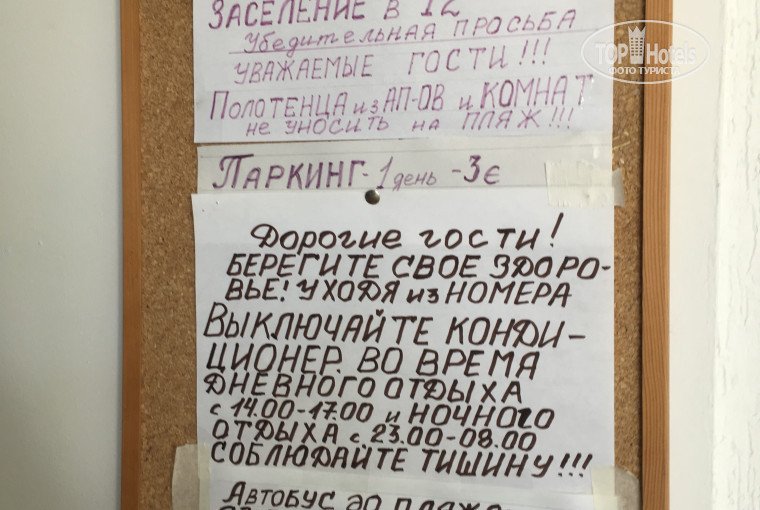 ЗАСЕЛЕНИЕ В 12
Убедительная просьба
УВАЖАЕМЫЕ ГОСТИ!!!
ПОЛОТЕНЦА из АП-ОВ и КОМНАТ
не уносить на пляж!!!
ПАРКИНГ-1 день -3€
Дорогие гости!
БЕРЕГИТЕ СВОЕ ЗДОРО-
ВЬЕ! УХОДЯ из НОМЕРА
ВЫКЛЮЧАЙТЕ КОНДИ-
ЦИОНЕР. ВО ВРЕМЯ
ДНЕВНОГО ОТДЫХА
с 14.00-17.00 и НОЧНОГО
ОТДЫХА с 23.00-08.00
СОБЛЮДАЙТЕ ТИШИНУ!!!
АВТОБУС до пляжа
TOP Hotels
ФОТО ТУРИСТА